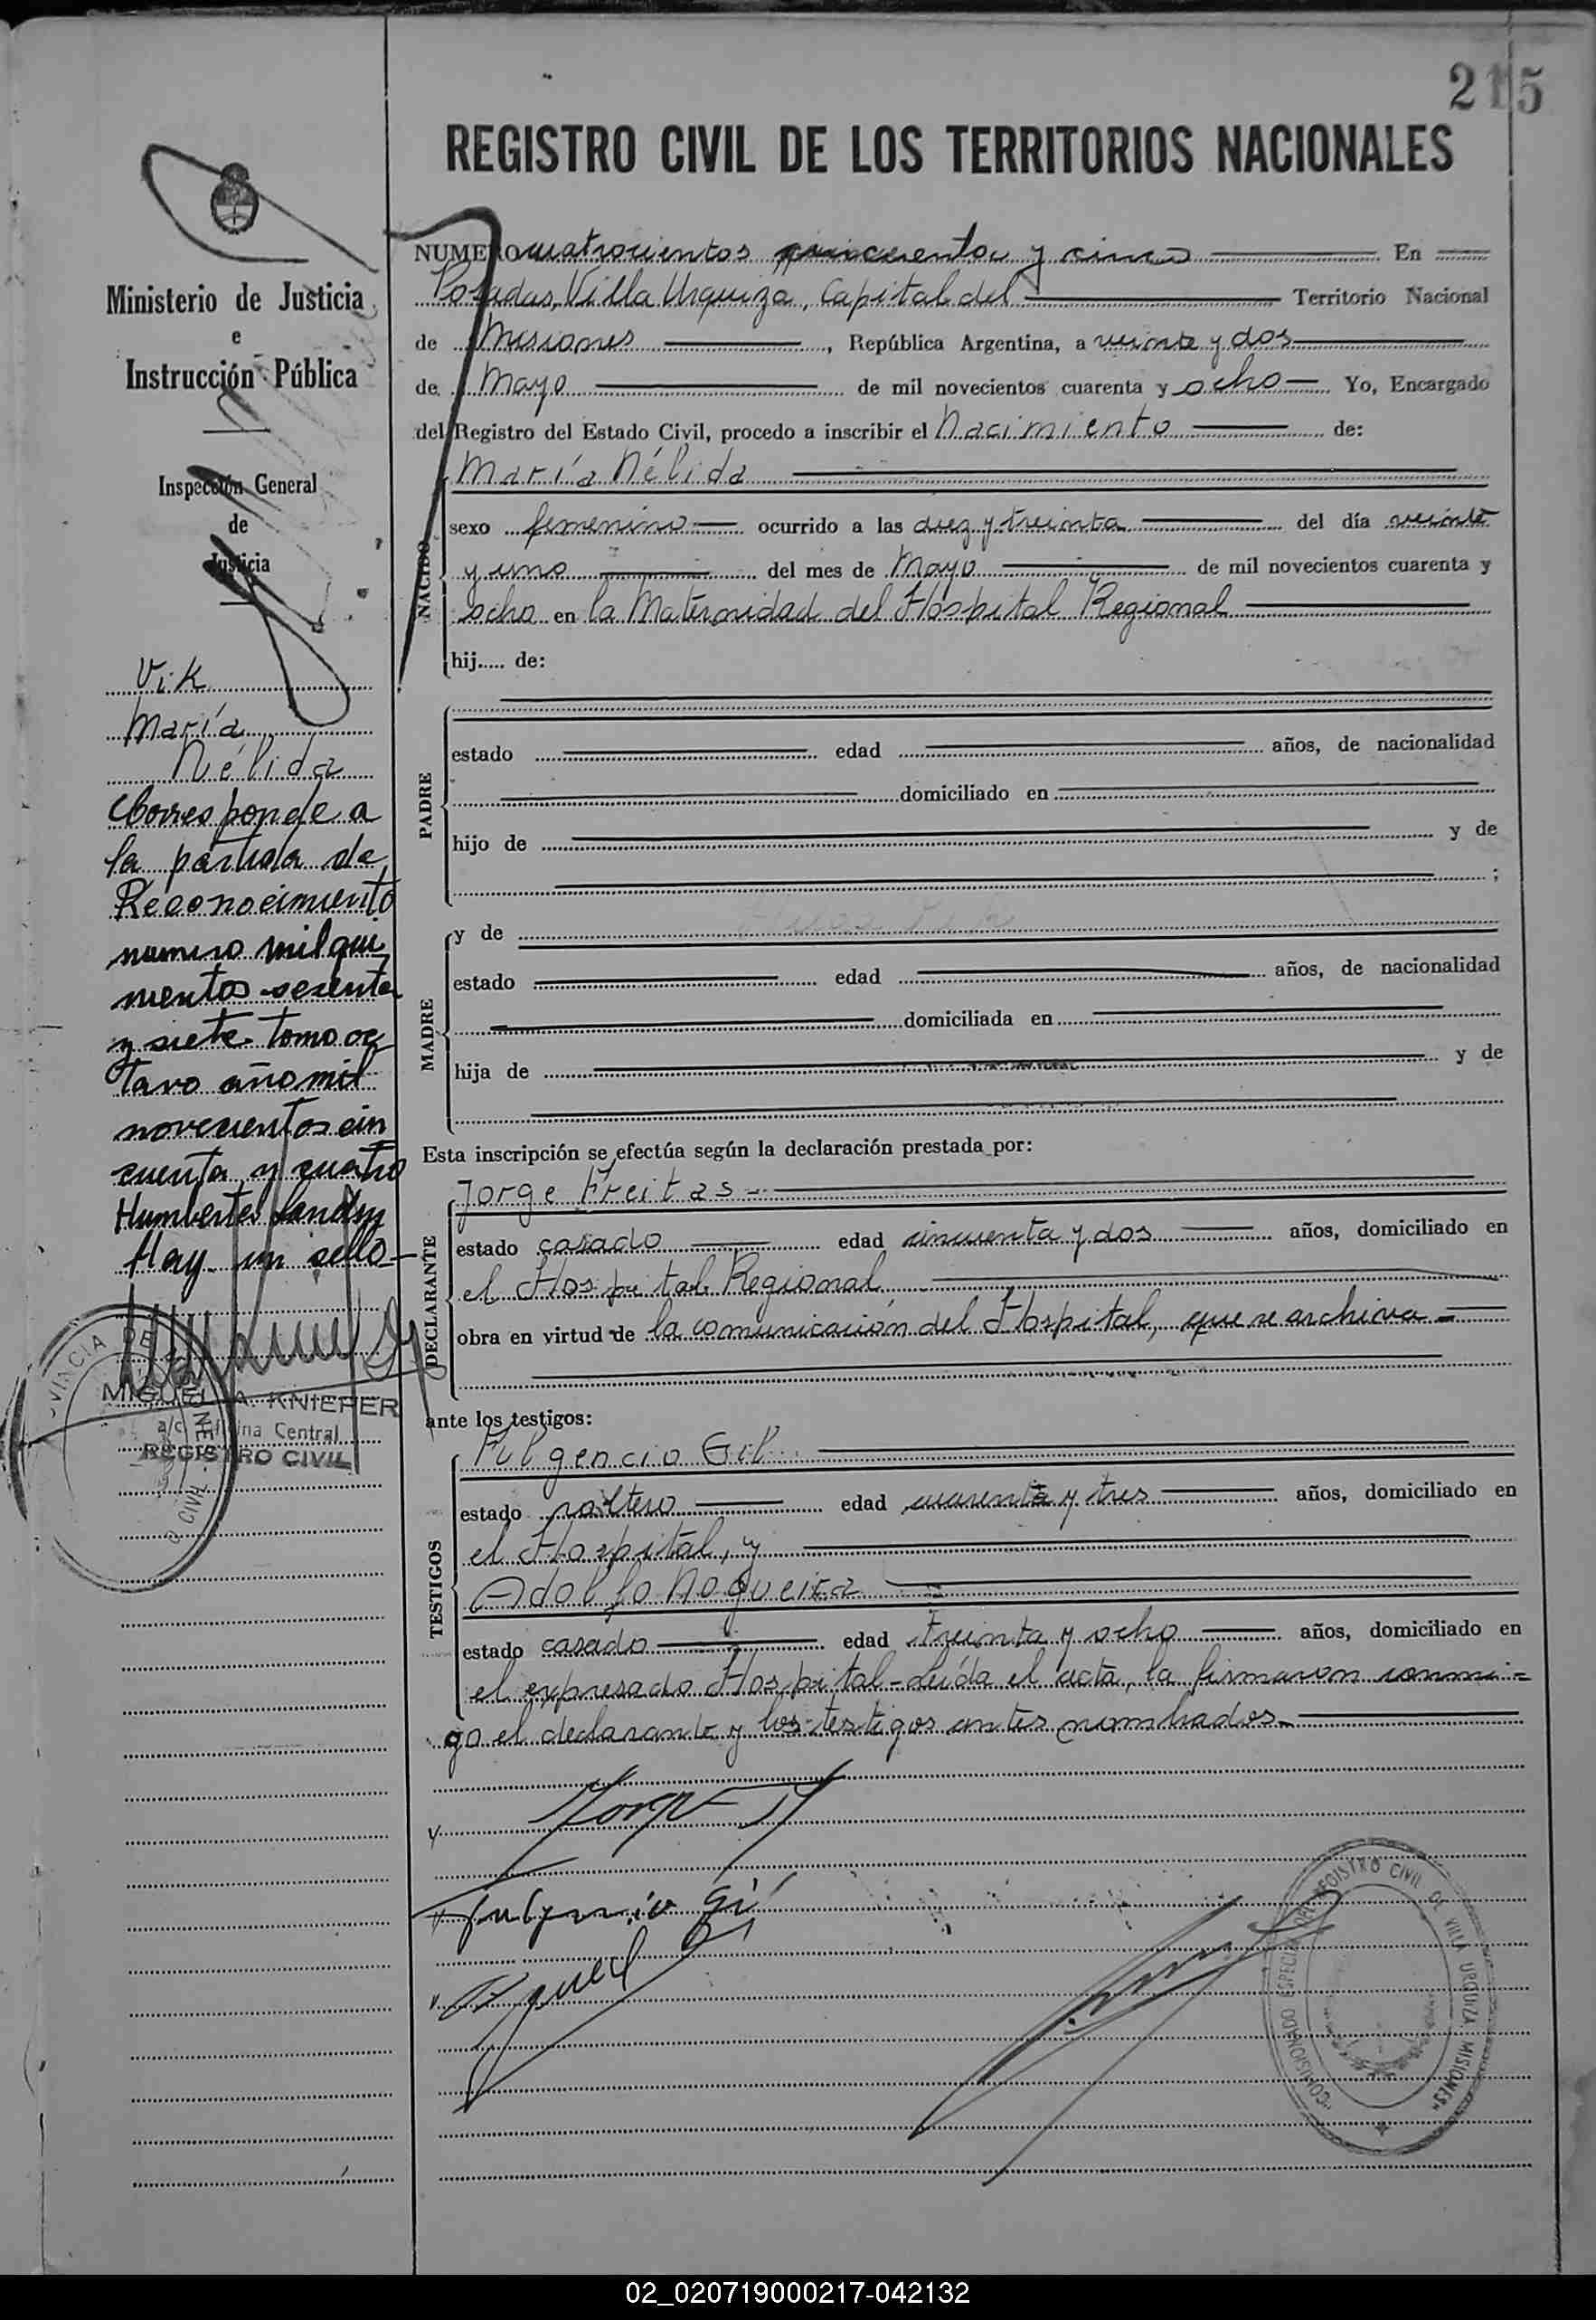 215
REGISTRO CIVIL DE LOS TERRITORIOS NACIONALES
Ministerio de Justicia
e
Instrucción Pública
Inspección General
de
Justicia
Vik
María
Nélida
Corresponde a
la partida de
Reconocimiento
numero mil qui
nientos sesenta
y siete tomo oc
tavo año mil
novecientos cin
cuenta y cuatro
Humberto
Hay un sello
PROVINCIA DE MISIONES
MIGUEL A. KNIEPER
a/c Oficina Central
REGISTRO CIVIL
NUMERO cuatrocientos y cinco En
Posadas, Villa Urquiza, Capital del Territorio Nacional
de Misiones, República Argentina, a veinte y dos
de Mayo de mil novecientos cuarenta y ocho Yo, Encargado
del Registro del Estado Civil, procedo a inscribir el Nacimiento de:
NACIDO
María Nélida
sexo femenino ocurrido a las diez y treinta del día veinte
y uno del mes de Mayo de mil novecientos cuarenta y
ocho en la Maternidad del Hospital Regional
hij..... de:
PADRE
estado edad años, de nacionalidad
domiciliado en
hijo de y de
;
MADRE
y de
estado edad años, de nacionalidad
domiciliada en
hija de y de
Esta inscripción se efectúa según la declaración prestada por:
DECLARANTE
Jorge Freitas
estado casado edad cincuenta y dos años, domiciliado en
el Hospital Regional
obra en virtud de la comunicación del Hospital, que se archiva
ante los testigos:
TESTIGOS
Fulgencio Gil
estado soltero edad cuarenta y tres años, domiciliado en
el Hospital, y
Adolfo Nogueira
estado casado edad treinta y ocho años, domiciliado en
el expresado Hospital - Leída el acta, la firmaron conmi-
go el declarante y los testigos antes nombrados
Fulgencio Gil
COMISIONADO ESPECIAL DEL REGISTRO CIVIL DE VILLA URQUIZA MISIONES
02_020719000217-042132